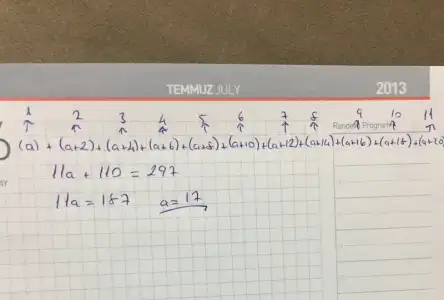 TEMMUZ JULY 2013
1 2 3 4 5 6 7 8 9 10 11
Randevu Program
(a) + (a+2) + (a+4) + (a+6) + (a+8) + (a+10) + (a+12) + (a+14) + (a+16) + (a+18) + (a+20)
11a + 110 = 297
11a = 187 a = 17